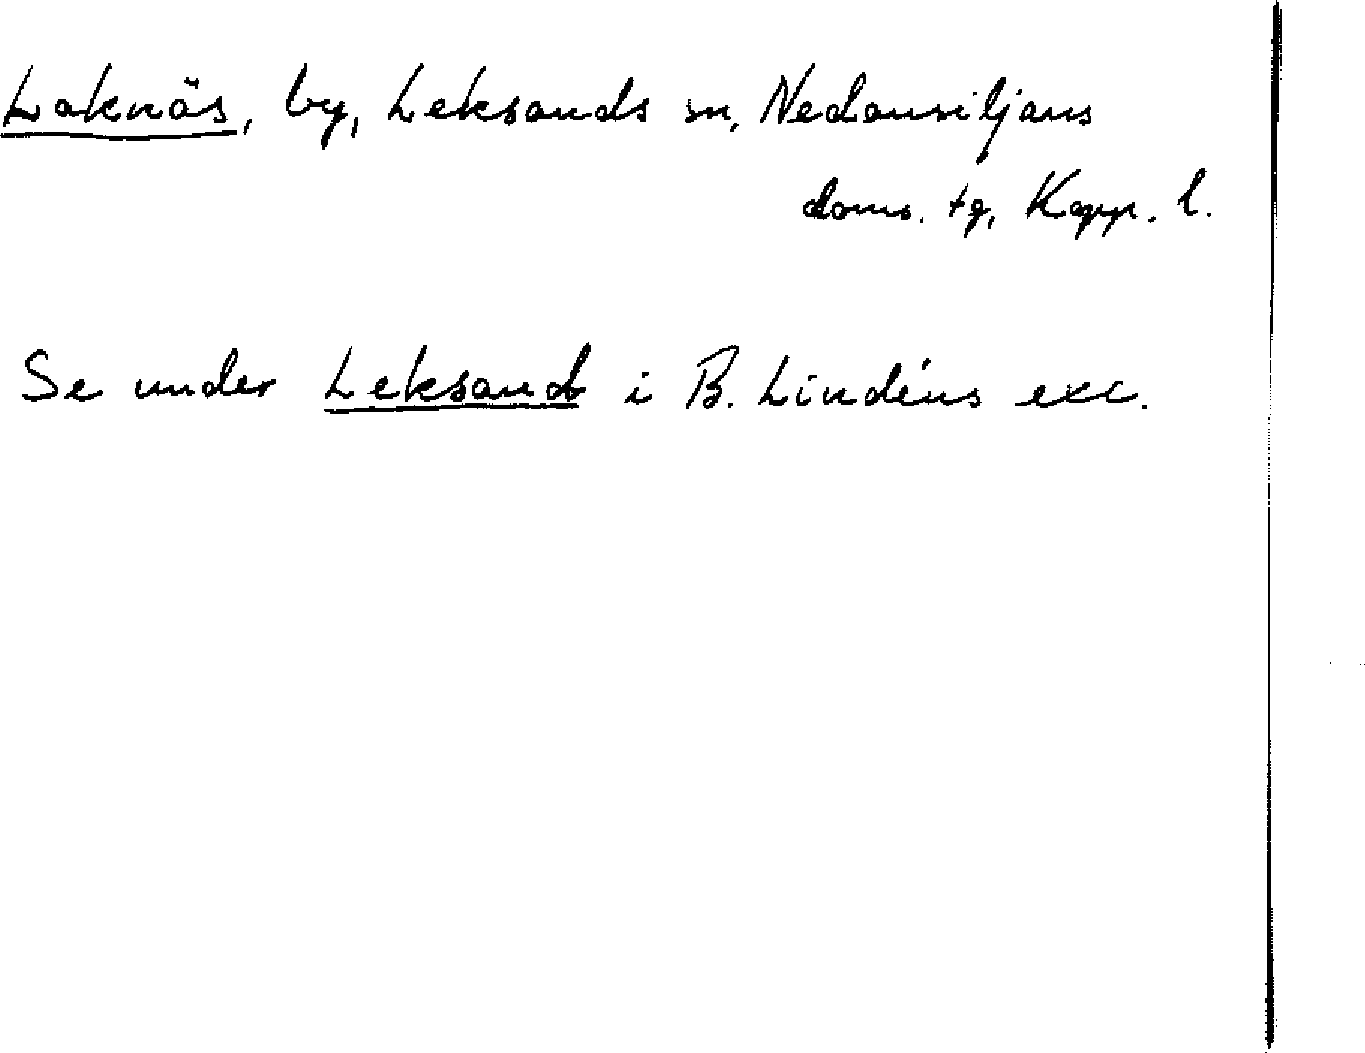 Laknäs, by, Leksands sn, Nedansiljans
doms. tg, Kopp. l.
Se under Leksand i B. Lindéns exc.